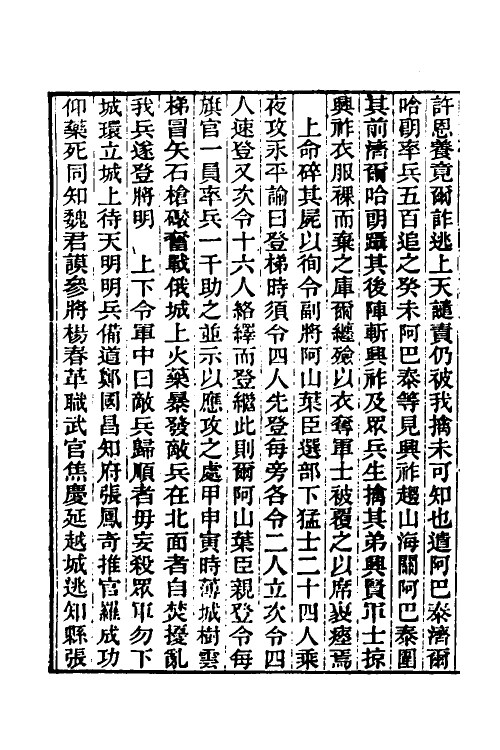 許恩養竟爾詐逃上天譴責仍被我擒未可知也遣阿巴泰濟爾
哈朗率兵五百追之癸未阿巴泰等見興祚趨山海關阿巴泰圍
其前濟爾哈朗躡其後陣斬興祚及眾兵生擒其弟興賢軍士掠
興祚衣服裸而棄之庫爾纏殮以衣奪軍士被覆之以席裹瘞焉
上命碎其屍以徇令副將阿山葉臣選部下猛士二十四人乘
夜攻永平諭曰登梯時須令四人先登每旁各令二人立次令四
人速登又次令十六人絡繹而登繼此則爾阿山葉臣親登令每
旗官一員率兵一千助之並示以應攻之處甲申寅時薄城樹雲
梯冒矢石槍礮奮戰俄城上火藥暴發敵兵在北面者自焚擾亂
我兵遂登將明 上下令軍中曰敵兵歸順者毋妄殺眾軍勿下
城環立城上待天明明兵備道鄭國昌知府張鳳奇推官羅成功
仰藥死同知魏君謨參將楊春革職武官焦慶延越城逃知縣張